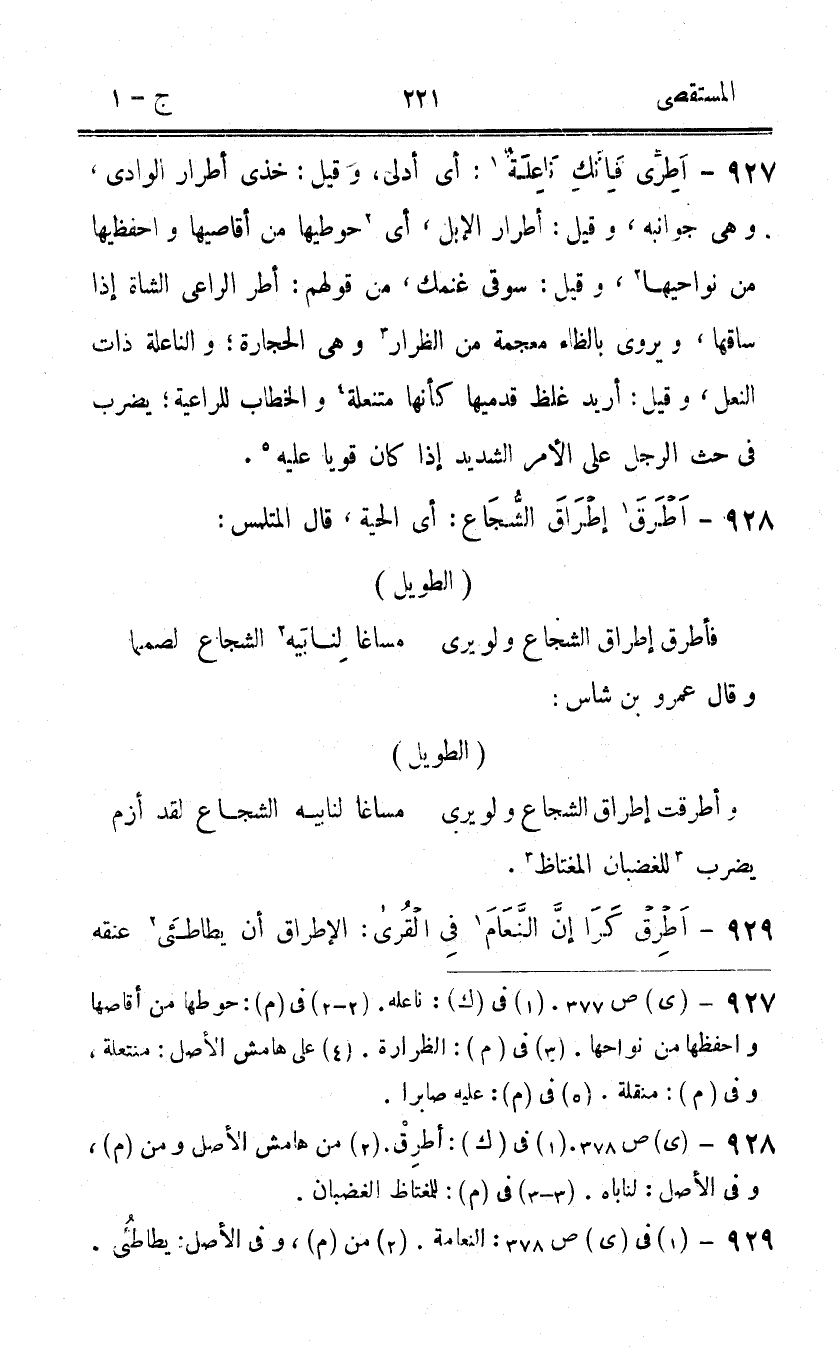 المستقصى ٢٢١ ج - ١
٩٢٧ - اَطِرِّى فَاِنَّكِ نَاعِلَةٌ ١ : أى أدلى، و قيل : خذى أطرار الوادى ،
و هى جوانبه ، و قيل : أطرار الإبل ، أى ٢حوطيها من أقاصيها و احفظيها
من نواحيها٢ ، و قيل : سوقى غنمك ، من قولهم : أطر الراعى الشاة إذا
ساقها ، و يروى بالظاء معجمة من الظرار٣ و هى الحجارة ؛ و الناعلة ذات
النعل ، و قيل : أريد غلظ قدميها كأنها متنعلة٤ و الخطاب للراعية ؛ يضرب
فى حث الرجل على الأمر الشديد إذا كان قويا عليه٥ .
٩٢٨ - اَطْرَقَ١ إِطْرَاقَ الشُّجَاعِ : أى الحية ، قال المتلمس :
( الطويل )
فأطرق إطراق الشجاع و لو يرى مساغا لِنَابَيه٢ الشجاع لصمما
و قال عمرو بن شاس :
( الطويل )
و أطرقت إطراق الشجاع و لو يرى مساغا لنابيه الشجاع لقد أزم
يضرب ٣للغضبان المغتاظ٣ .
٩٢٩ - اَطْرِقْ كَرَا إِنَّ النَّعَامَ١ فِى الْقُرىٰ : الإطراق أن يطاطئى٢ عنقه
٩٢٧ - (ى) ص ٣٧٧ . (١) فى (ك) : ناعله . (٢-٢) فى (م) : حوطها من أقاصها
و احفظها من نواحها . (٣) فى ( م ) : الظرارة . (٤) على هامش الأصل : منتعلة ،
و فى ( م ) : منقلة . (٥) فى (م) : عليه صابرا .
٩٢٨ - (ى) ص ٣٧٨ . (١) فى ( ك ) : أطرِقْ . (٢) من هامش الأصل و من (م) ،
و فى الأصل : لناباه . (٣-٣) فى (م) : للمغتاظ الغضبان .
٩٢٩ - (١) فى (ى) ص ٣٧٨ : النعامة . (٢) من (م) ، و فى الأصل : يطاطُئى .